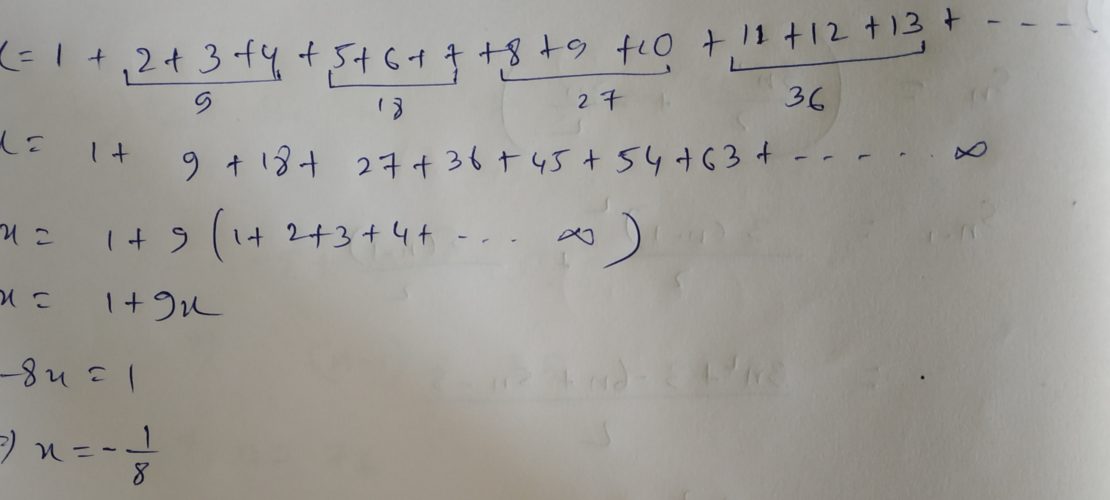 x = 1 + 2 + 3 + 4 + 5 + 6 + 7 + 8 + 9 + 10 + 11 + 12 + 13 + - - - -
9 18 27 36
x = 1 + 9 + 18 + 27 + 36 + 45 + 54 + 63 + - - - - . ∞
x = 1 + 9 (1 + 2 + 3 + 4 + - - . . ∞)
x = 1 + 9x
-8x = 1
⇒ x = - 1/8